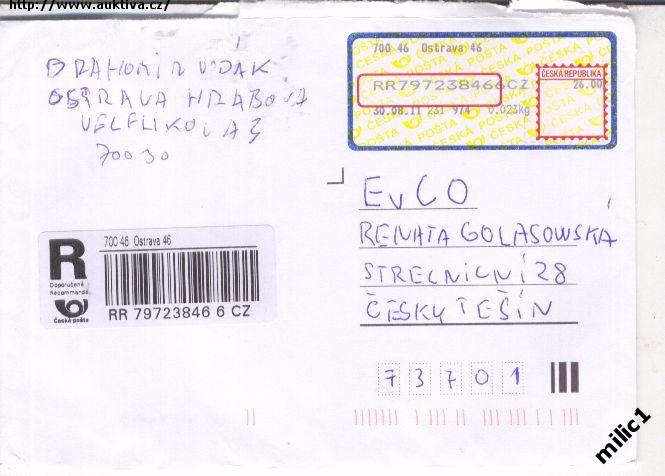 http://www.auktiva.cz/
DRAHOMIR VODAK
OSTRAVA HRABOVA
70030
700 46 Ostrava 46
RR797238466CZ
ČESKÁ REPUBLIKA
26.00
30.08.11 231 974 0.023kg
ČESKÁ POŠTA
EVCO
RENATA GOLASOWSKA
STRELNICNÍ 28
ČESKY TEŠÍN
73701
R
Doporučeně
Recommandé
Česká pošta
700 46 Ostrava 46
RR 79723846 6 CZ
milic1